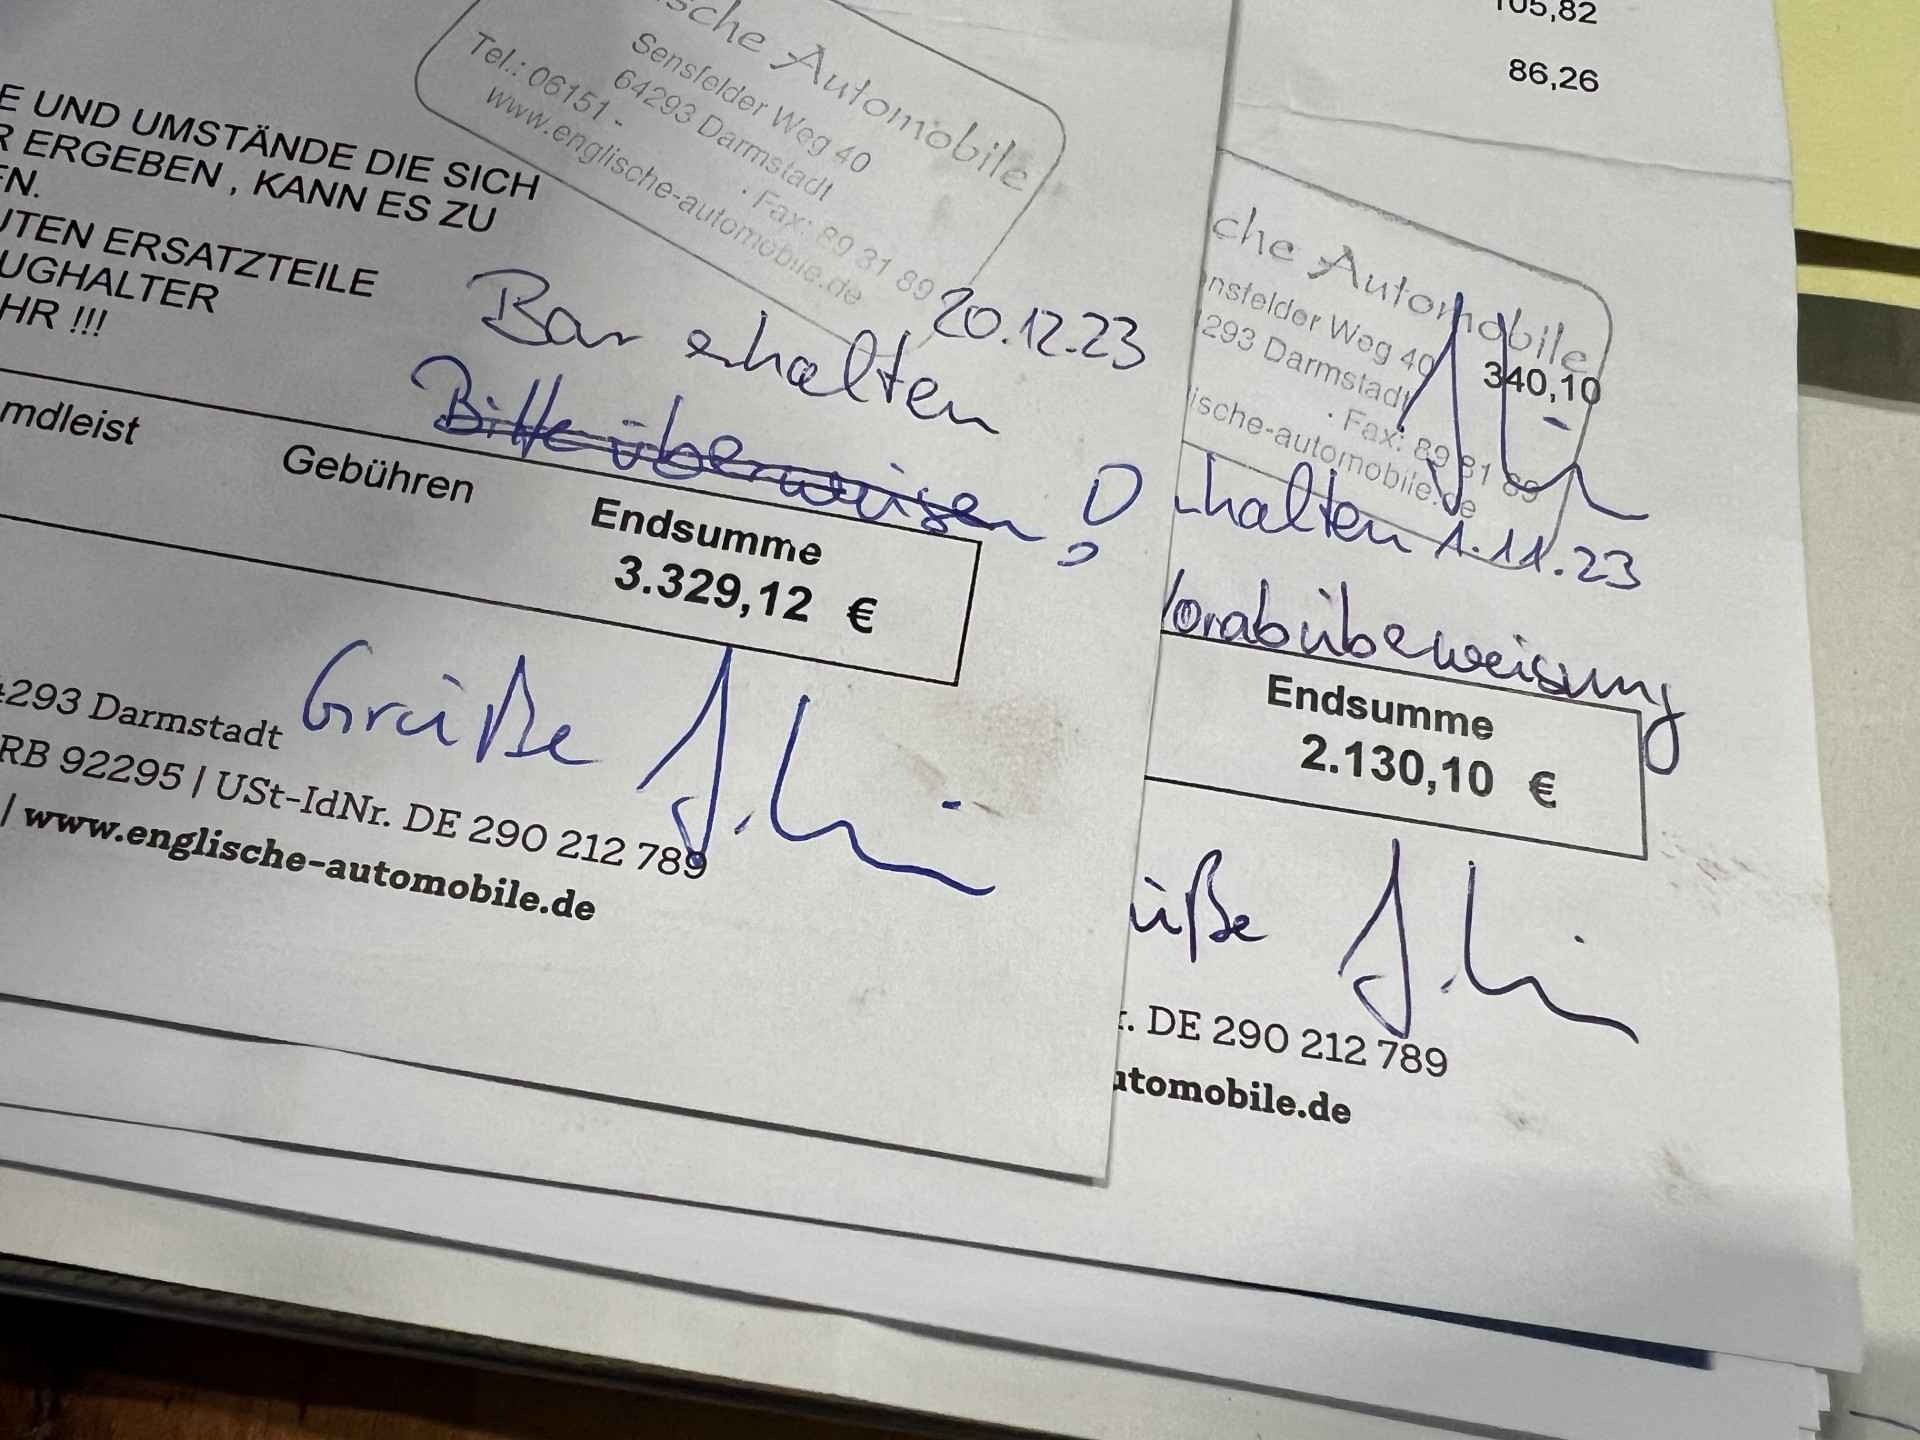 sche Automobile
Sensfelder Weg 40
64293 Darmstadt
Tel.: 06151 - · Fax: 89 31 89
www.englische-automobile.de
E UND UMSTÄNDE DIE SICH
R ERGEBEN , KANN ES ZU
EN.
UTEN ERSATZTEILE
UGHALTER
HR !!!
Bar erhalten 20.12.23
Bitte überweisen !
mdleist Gebühren Endsumme
3.329,12 €
Grüße
4293 Darmstadt
RB 92295 | USt-IdNr. DE 290 212 789
| www.englische-automobile.de
105,82
86,26
che Automobile
nsfelder Weg 40
293 Darmstadt
340,10
· Fax: 89 31 89
lische-automobile.de
rhalten 1.11.23
Vorabüberweisung
Endsumme
2.130,10 €
üße
r. DE 290 212 789
utomobile.de